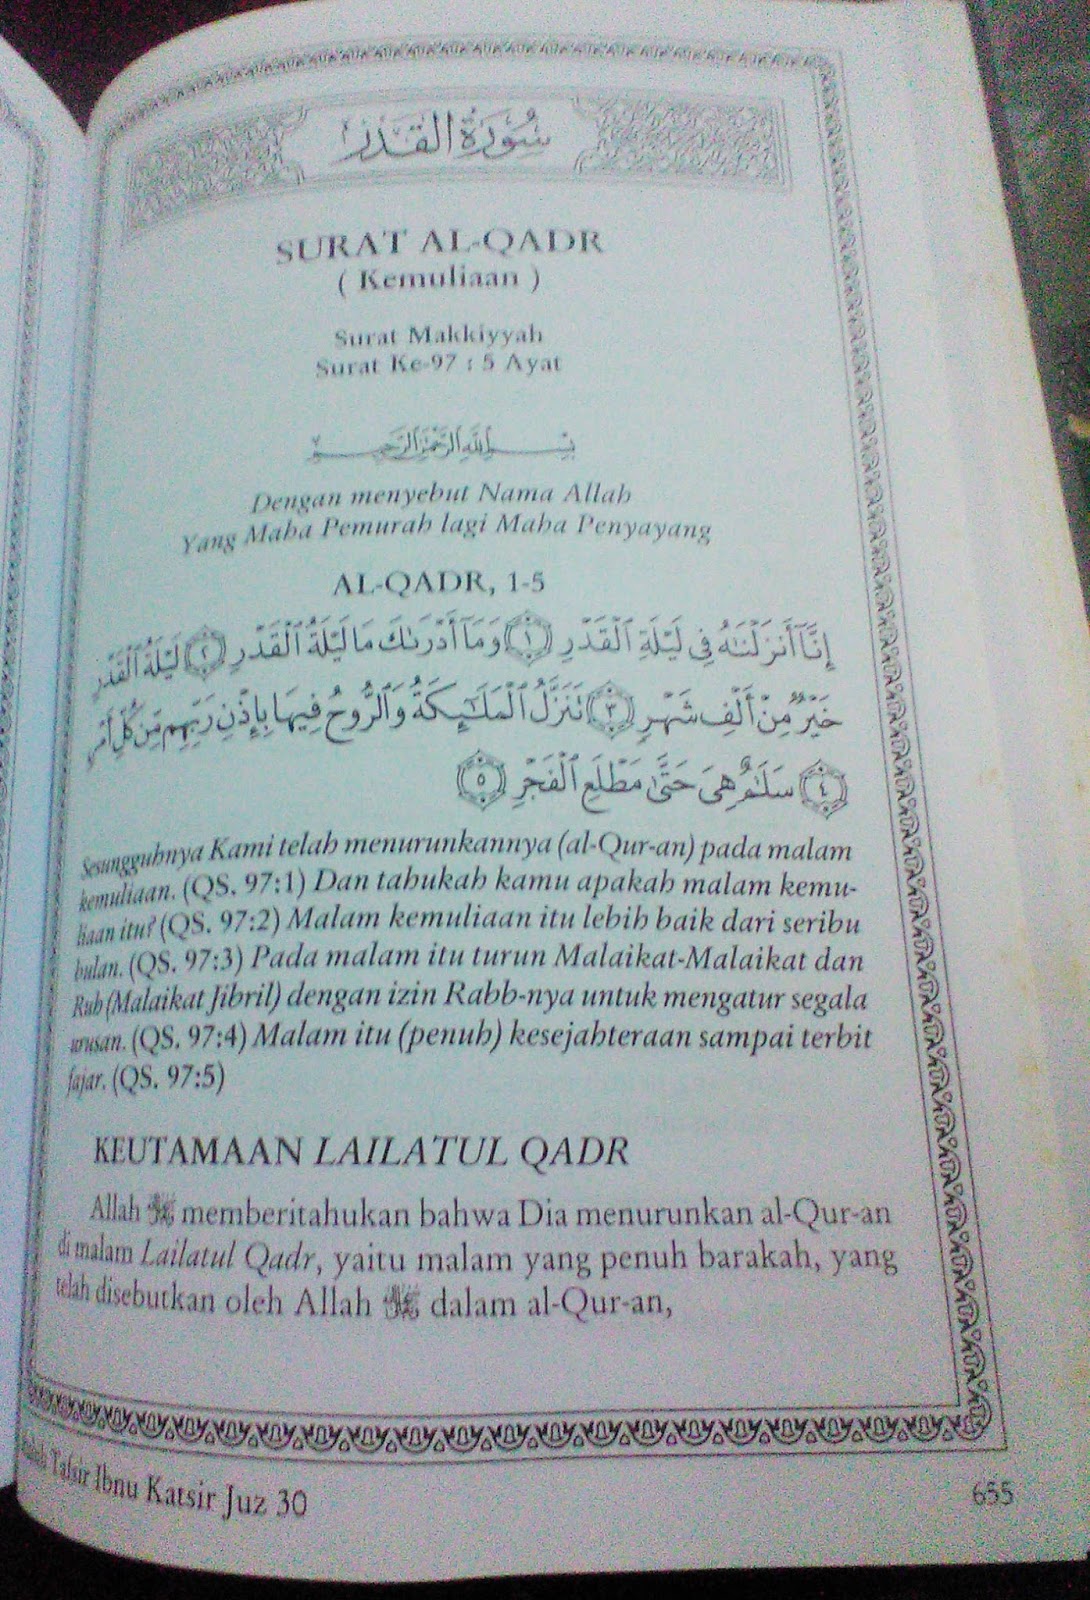 سُورَةُ الْقَدْرِ
SURAT AL-QADR
( Kemuliaan )
Surat Makkiyyah
Surat Ke-97 : 5 Ayat
بِسْمِ اللَّهِ الرَّحْمَٰنِ الرَّحِيمِ
Dengan menyebut Nama Allah
Yang Maha Pemurah lagi Maha Penyayang
AL-QADR, 1-5
إِنَّآ أَنزَلْنَٰهُ فِى لَيْلَةِ ٱلْقَدْرِ ١ وَمَآ أَدْرَىٰكَ مَا لَيْلَةُ ٱلْقَدْرِ ٢ لَيْلَةُ ٱلْقَدْرِ
خَيْرٌ مِّنْ أَلْفِ شَهْرٍ ٣ تَنَزَّلُ ٱلْمَلَٰٓئِكَةُ وَٱلرُّوحُ فِيهَا بِإِذْنِ رَبِّهِم مِّن كُلِّ أَمْرٍ
٤ سَلَٰمٌ هِىَ حَتَّىٰ مَطْلَعِ ٱلْفَجْرِ ٥
Sesungguhnya Kami telah menurunkannya (al-Qur-an) pada malam
kemuliaan. (QS. 97:1) Dan tahukah kamu apakah malam kemu-
liaan itu? (QS. 97:2) Malam kemuliaan itu lebih baik dari seribu
bulan. (QS. 97:3) Pada malam itu turun Malaikat-Malaikat dan
Ruh (Malaikat Jibril) dengan izin Rabb-nya untuk mengatur segala
urusan. (QS. 97:4) Malam itu (penuh) kesejahteraan sampai terbit
fajar. (QS. 97:5)
KEUTAMAAN LAILATUL QADR
Allah ﷻ memberitahukan bahwa Dia menurunkan al-Qur-an
di malam Lailatul Qadr, yaitu malam yang penuh barakah, yang
telah disebutkan oleh Allah ﷻ dalam al-Qur-an,
Tafsir Ibnu Katsir Juz 30
655